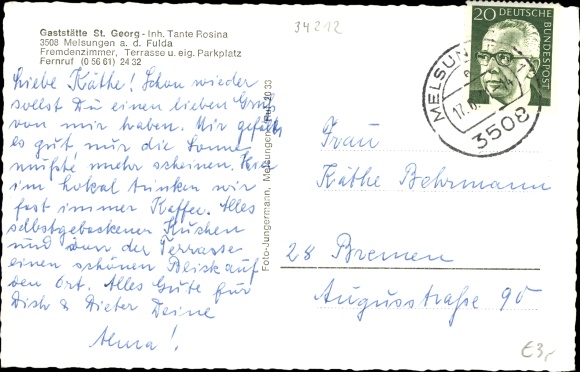 Gaststätte St. Georg - Inh. Tante Rosina
3508 Melsungen a. d. Fulda
Fremdenzimmer, Terrasse u. eig. Parkplatz
Fernruf (0 56 61) 24 32
34212
20 DEUTSCHE BUNDESPOST
MELSUN
17.
3508
Liebe Käthe! Schon wieder
sollst Du einen lieben Gruß
von mir haben. Mir gefällt
es gut nur die Sonne
müßte mehr scheinen. Hier
im Lokal trinken wir
fast immer Kaffee. Alles
selbstgebackener Kuchen
und von der Terrasse
einen schönen Blick auf
den Ort. Alles Gute für
Dich & Dieter Deine
Alma!
Foto-Jungermann, Melsungen, Ruf 20 33
Frau
Käthe Behrmann
28 Bremen
Augusstraße 90
€3,-